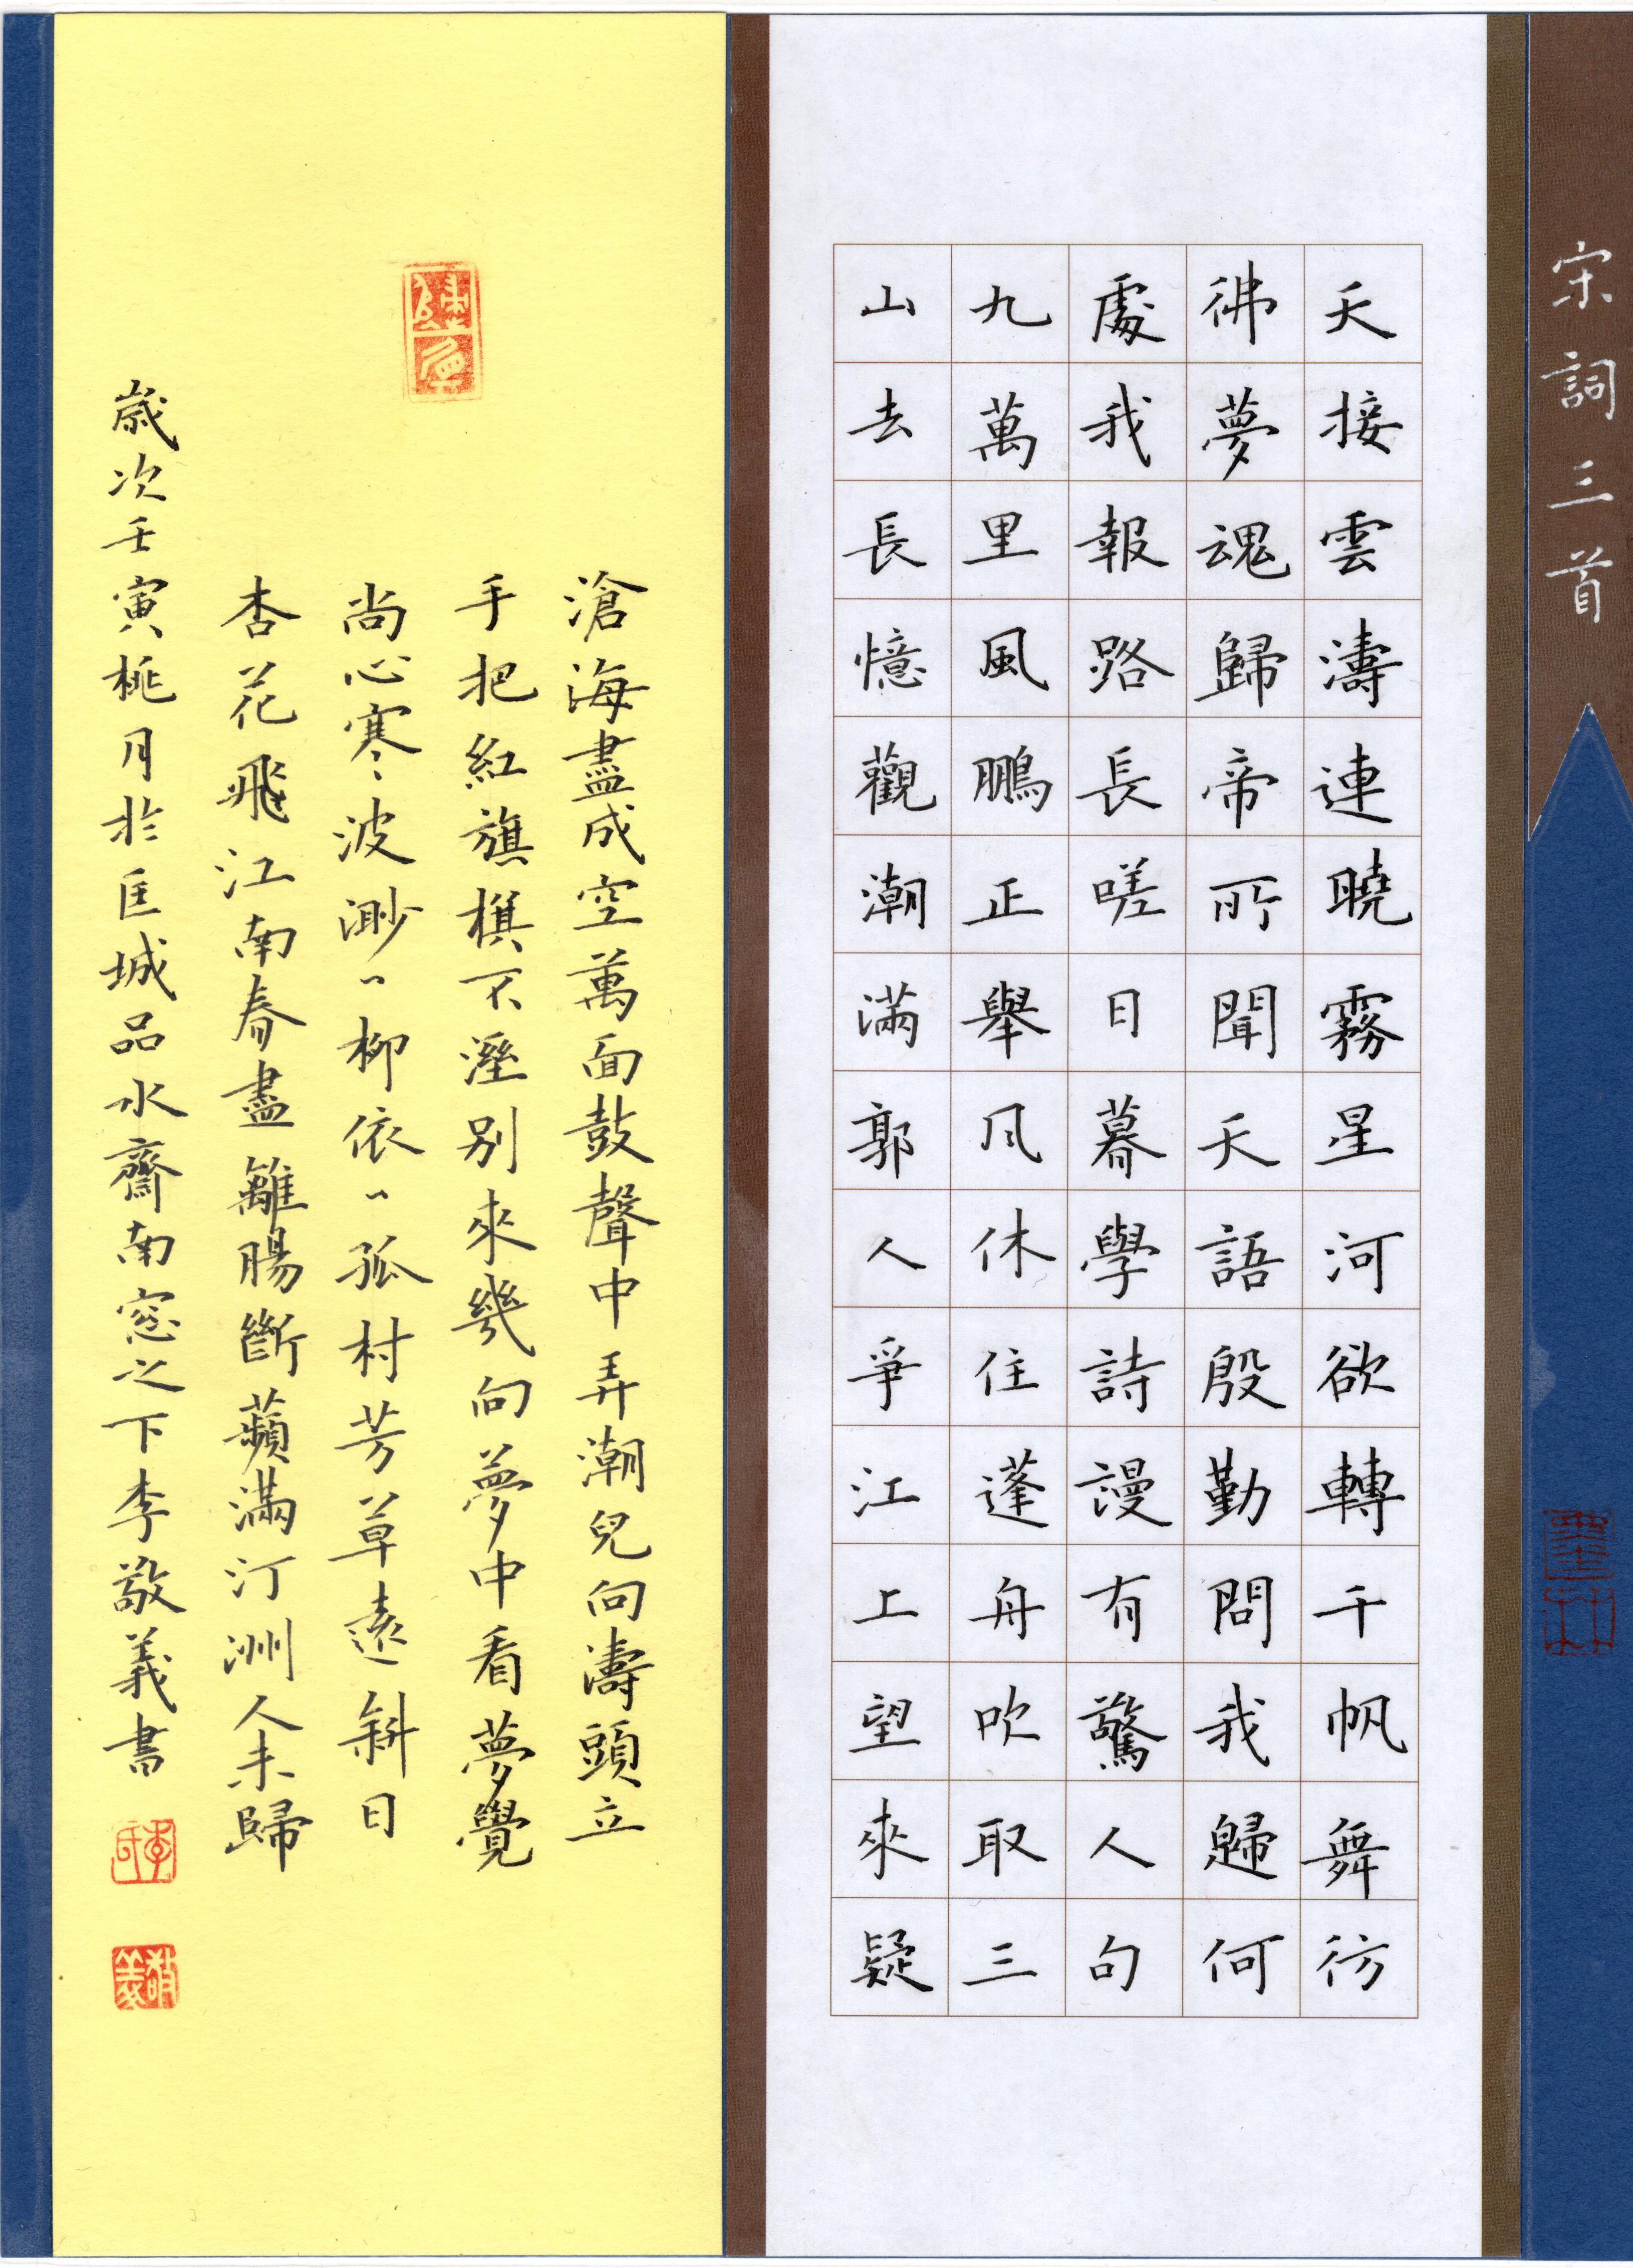 宋詞三首
天接雲濤連曉霧星河欲轉千帆舞彷
彿夢魂歸帝所聞天語殷勤問我歸何
處我報路長嗟日暮學詩謾有驚人句
九萬里風鵬正舉风休住蓬舟吹取三
山去長憶觀潮滿郭人爭江上望來疑
滄海盡成空萬面鼓聲中弄潮兒向濤頭立
手把紅旗旗不溼別來幾向夢中看夢覺
尚心寒波渺〻柳依〻孤村芳草遠斜日
杏花飛江南春盡離腸斷蘋滿汀洲人未歸
歲次壬寅桃月於匡城品水齋南窓之下李敬義書
李氏
敬義